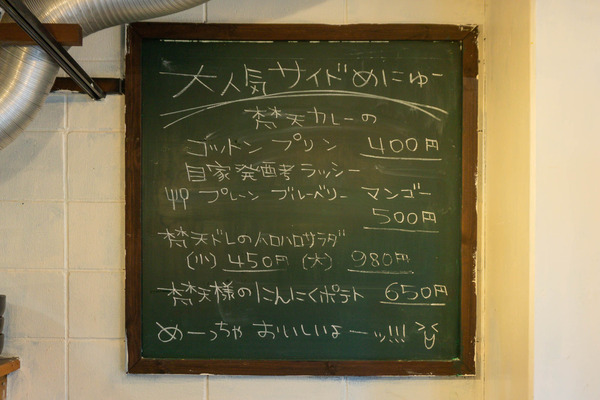 大人気サイドめにゅー
梵天カレーの
ゴッドン プリン 400円
自家発酵ラッシー
プレーン ブルーベリー マンゴー
500円
梵天ドレのハロハロサラダ
(小) 450円 (大) 980円
梵天様のにんにくポテト 650円
めーっちゃ おいしいよーッ!!!